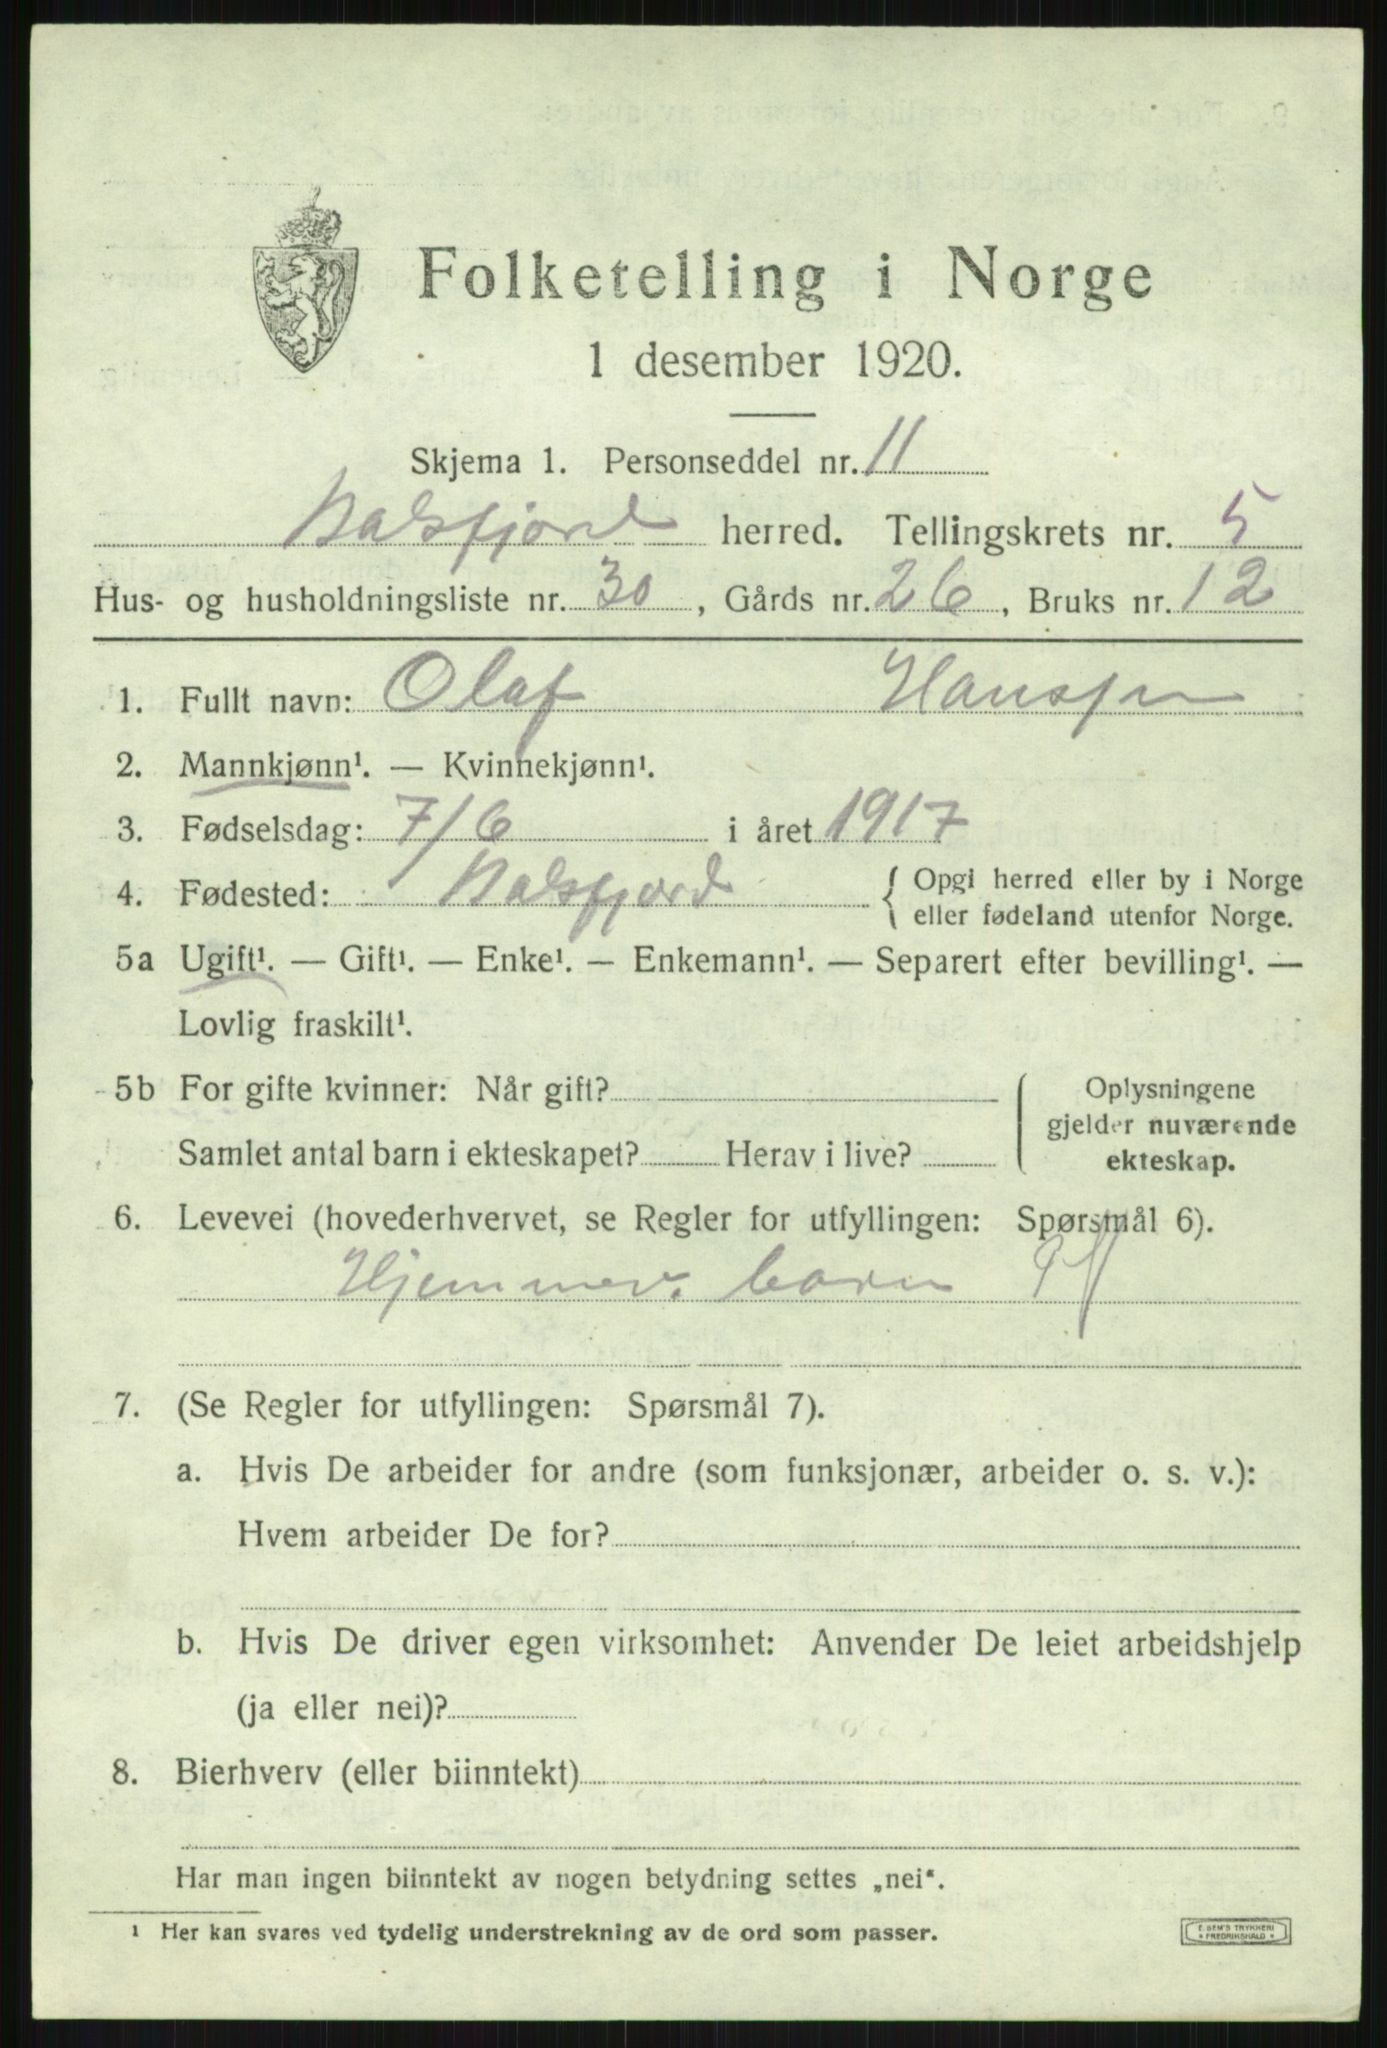 Folketelling i Norge
1 desember 1920.
Skjema 1. Personseddel nr. 11
Balsfjord herred. Tellingskrets nr. 5
Hus- og husholdningsliste nr. 30, Gårds nr. 26, Bruks nr. 12
1. Fullt navn: Olaf Hansen
2. Mannkjønn¹. — Kvinnekjønn¹.
3. Fødselsdag: 7/6 i året 1917
4. Fødested: Balsfjord { Opgi herred eller by i Norge
eller fødeland utenfor Norge.
5a Ugift¹. — Gift¹. — Enke¹. — Enkemann¹. — Separert efter bevilling¹. —
Lovlig fraskilt¹.
5b For gifte kvinner: Når gift?
Samlet antal barn i ekteskapet? Herav i live?
Oplysningene
gjelder nuværende
ekteskap.
6. Levevei (hovederhvervet, se Regler for utfyllingen: Spørsmål 6).
Hjemmev. barn
7. (Se Regler for utfyllingen: Spørsmål 7).
a. Hvis De arbeider for andre (som funksjonær, arbeider o. s. v.):
Hvem arbeider De for?
b. Hvis De driver egen virksomhet: Anvender De leiet arbeidshjelp
(ja eller nei)?
8. Bierhverv (eller biinntekt)
Har man ingen biinntekt av nogen betydning settes „nei“.
¹ Her kan svares ved tydelig understrekning av de ord som passer.
E. SEM'S TRYKKERI
* FREDRIKSHALD *